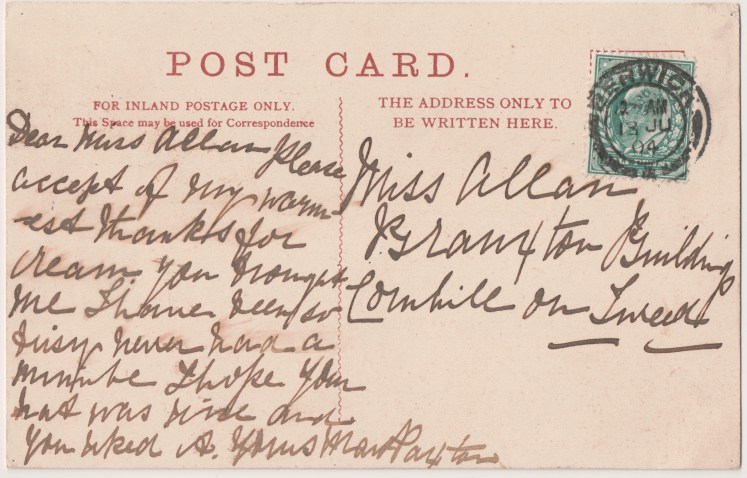 POST CARD.
FOR INLAND POSTAGE ONLY.
This Space may be used for Correspondence
THE ADDRESS ONLY TO
BE WRITTEN HERE.
BERWICK
AM
13 JU
04
Dear Miss Allan Please
accept of my warm-
-est thanks for
cream you brought
me I have been so
busy never had a
minute I hope you
hat was nice and
you liked it. Yours Mary Paxton
Miss Allan
Branxton Buildings
Cornhill on Tweed